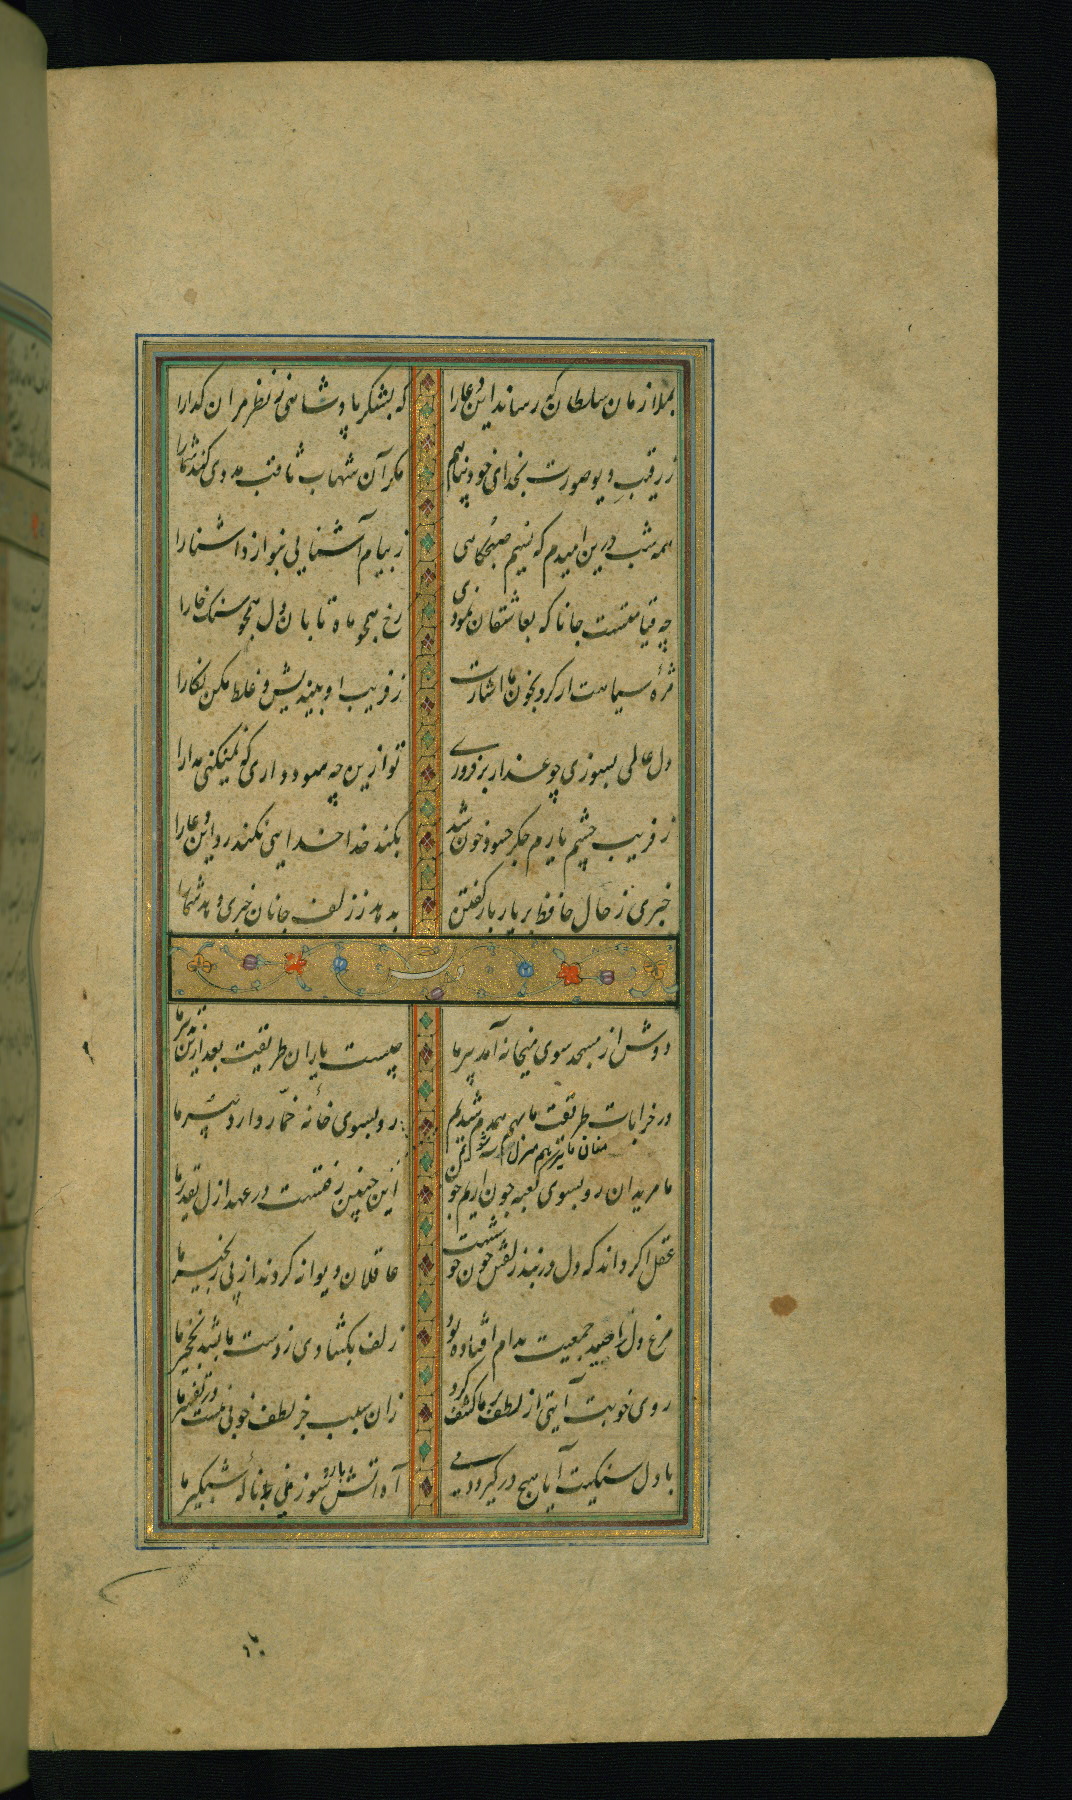 بملازمان سلطان که رساند این دعا را
که بشکر پادشاهی ز نظر مران گدا را
ز رقیب دیو صورت بخدای خود پناهم
مگر آن شهاب ثاقب مددی کند شما را
همه شب درین امیدم که نسیم صبحگاهی
ز پیام آشنایی بنوازد آشنا را
چه قیامتست جانا که بعاشقان نمودی
رخ همچو ماه تابان دل همچو سنگ خارا
مژه سیاهت ار کرد بخون ما اشارت
ز فریب او بیندیش و غلط مکن نگارا
دل عالمی بسوزی چو عذار بر فروزی
تو ازین چه سود داری که نمیکنی مدارا
ز فریب چشم یارم جگر حسود خون شد
بکند خدا خدایی نکند رد این دعا را
خبری ز حال حافظ بر یار بار گفتن
بدهد ز زلف جانان خبری دهد شما را
دوش از مسجد سوی میخانه آمد پیر ما
چیست یاران طریقت بعد ازین تدبیر ما
در خرابات طریقت ما بهم همدم شدیم
رو بسوی خانه خمار دارد پیر ما
مغان ما نیز هم منزل شویم
ما مریدان رو بسوی کعبه چون آریم چون
این چنین رفتست در عهد ازل تقدیر ما
عقل اگر داند که دل در بند زلفش چون خوشست
عاقلان دیوانه گردند از پی زنجیر ما
مرغ دل را صید جمعیت بدام افتاده بود
زلف بگشادی ز دست ما بشد نخجیر ما
روی خوبت آیتی از لطف بر ما کشف کرد
زان سبب جز لطف خوبی نیست در تفسیر ما
با دل سنگینت آیا هیچ در گیرد دمی
آه آتش بار و سوز نی ناله شبگیر ما